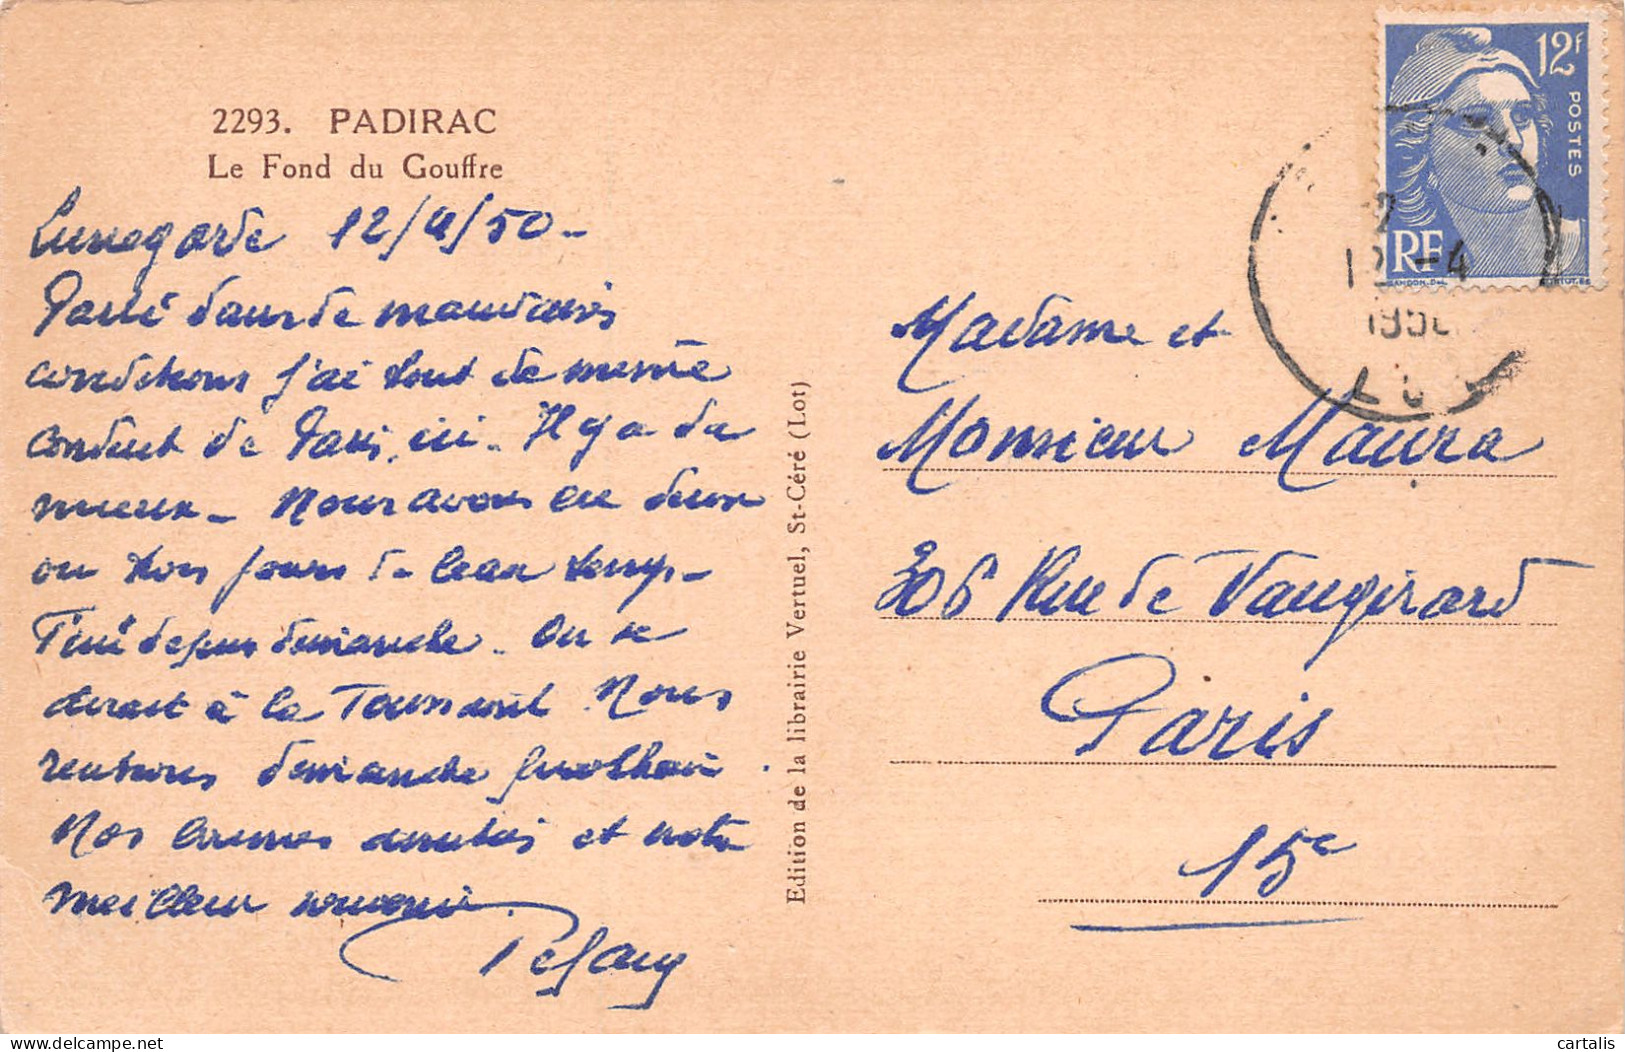 2293. PADIRAC
Le Fond du Gouffre
Lunegarde 12/4/50 -
Parti dans de mauvaises
conditions j'ai tout de même
conduit de Paris ici. Il y a du
mieux - Nous avons eu deux
ou trois jours de beau temps -
Fini depuis dimanche. On se
dirait à la Toussaint. Nous
rentrons dimanche prochain.
Nos bonnes amitiés et notre
meilleur souvenir.
Edition de la librairie Vertuel, St-Céré (Lot)
12f
POSTES
RF
GANDON. DEL.
12 -4
1950
LOT
Madame et
Monsieur Maura
306 Rue de Vaugirard
Paris
15e
delcampe.net
cartalis